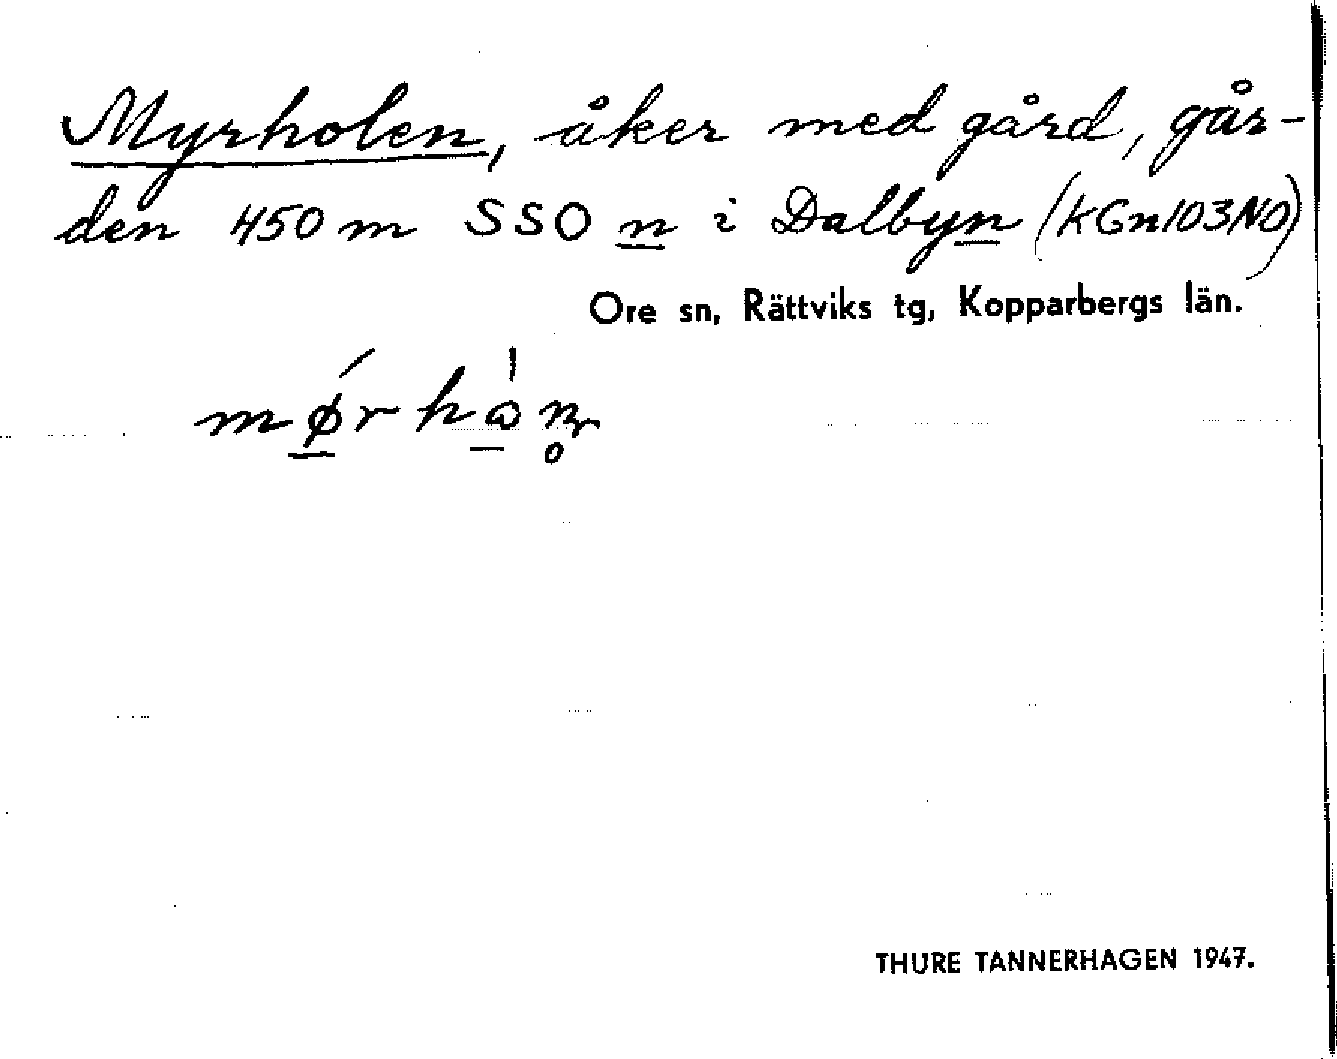 Myrholen, åker med gård, går-
den 450 m SSO n i Dalbyn (KGn103NO)
Ore sn, Rättviks tg, Kopparbergs län.
THURE TANNERHAGEN 1947.